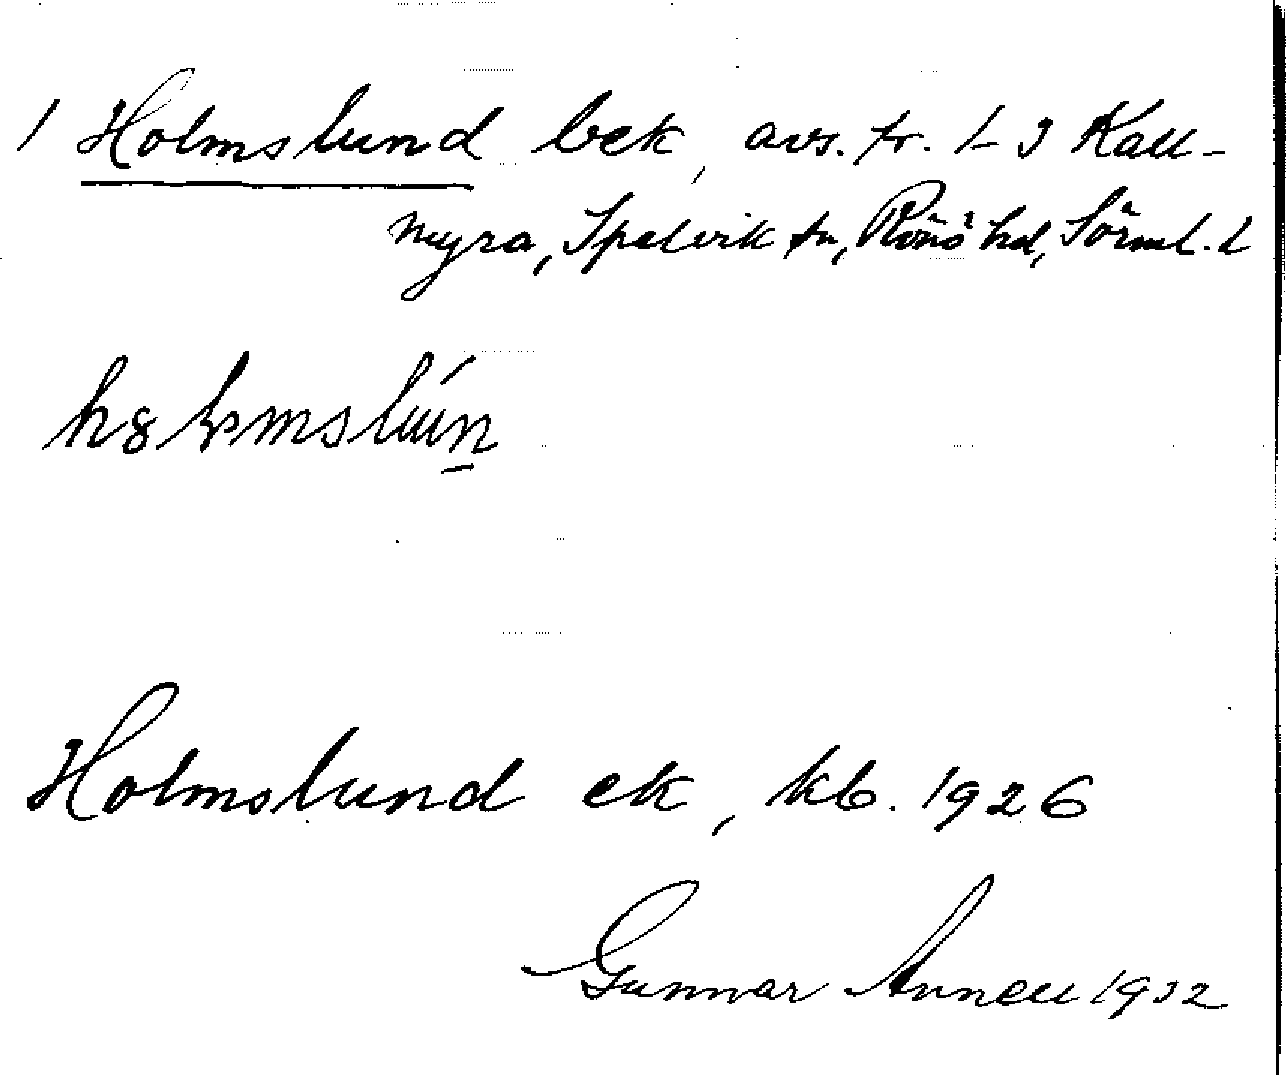 1 Holmslund bek, avs. fr. 1-3 Käll-
myra, Spelvik sn, Rönö hd, Sörml. l
Holmslund ek, kb. 1926
Gunnar Annell 1932